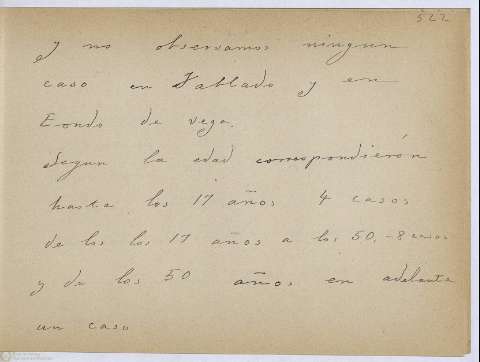 522
y no observamos ningun
caso en Tablado y en
Fondo de vega.
Segun la edad correspondierón
hasta los 17 años 4 casos
de los los 17 años a los 50.-8 casos
y de los 50 años en adelante
un caso